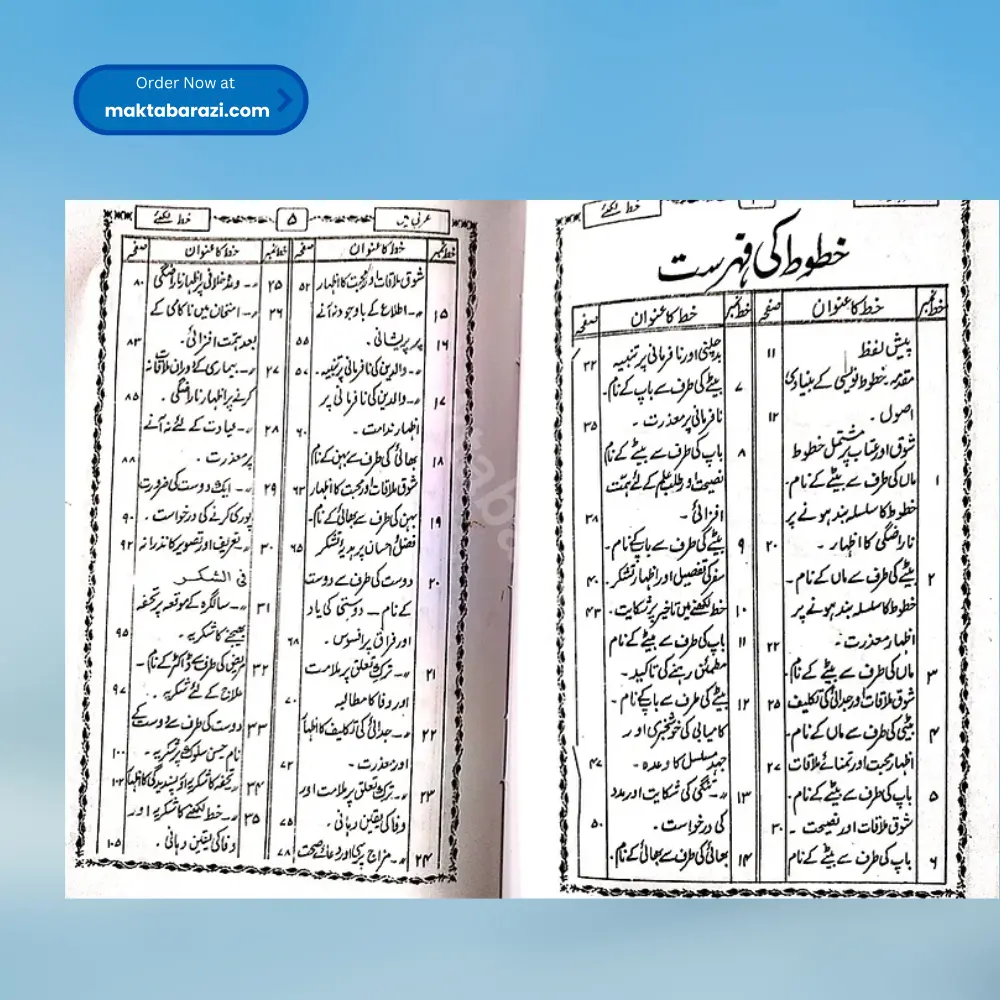 Order Now at
maktabarazi.com
خط لکھئے
خطوط کی فہرست
خط نمبر خط کا عنوان صفحہ
پیش لفظ ۱۱
مقدمہ۔ خطوط نویسی کے بنیادی
اصول۔ ۱۲
شوق اور عتاب پر مشتمل خطوط
۱ ماں کی طرف سے بیٹے کے نام۔
خطوط کا سلسلہ بند ہونے پر
ناراضگی کا اظہار۔ ۲۰
۲ بیٹے کی طرف سے ماں کے نام۔
خطوط کا سلسلہ بند ہونے پر
اظہار معذرت۔ ۲۲
۳ ماں کی طرف سے بیٹے کے نام۔
شوق ملاقات اور جدائی کی تکلیف ۲۵
۴ بیٹی کی طرف سے ماں کے نام۔
اظہار محبت اور تمنائے ملاقات ۲۷
۵ باپ کی طرف سے بیٹے کے نام۔
شوق ملاقات اور نصیحت۔ ۳۰
۶ باپ کی طرف سے بیٹے کے نام
خط نمبر خط کا عنوان صفحہ
بدچلنی اور نافرمانی پر تنبیہ ۳۲
۷ بیٹے کی طرف سے باپ کے نام۔
نافرمانی پر معذرت۔ ۳۵
۸ باپ کی طرف سے بیٹے کے نام
نصیحت اور طلب علم کے لئے ہمت
افزائی۔ ۳۸
۹ بیٹے کی طرف سے باپ کے نام۔
سفر کی تفصیل اور اظہار تشکر ۴۰
۱۰ خط لکھنے میں تاخیر پر شکایت۔ ۴۳
۱۱ باپ کی طرف سے بیٹے کے نام
مطمئن رہنے کی تاکید۔
۱۲ بیٹے کی طرف سے باپ کے نام۔
کامیابی کی خوشخبری اور
جہد مسلسل کا وعدہ۔ ۴۷
۱۳ ״۔ تنگی کی شکایت اور مدد
کی درخواست۔ ۵۰
۱۴ بھائی کی طرف سے بھائی کے نام۔
عربی میں ۵ خط لکھئے
خط نمبر خط کا عنوان صفحہ
شوق ملاقات اور محبت کا اظہار ۵۲
۱۵ ״۔ اطلاع کے باوجود نہ آنے
۱۶ پر پریشانی۔ ۵۵
״۔ والدین کی نافرمانی پر تنبیہ۔ ۵۷
۱۷ ״۔ والدین کی نافرمانی پر
اظہار ندامت۔ ۶۰
۱۸ بھائی کی طرف سے بہن کے نام
شوق ملاقات اور محبت کا اظہار ۶۳
۱۹ بہن کی طرف سے بھائی کے نام۔
فضل و احسان پر ہدیۂ تشکر ۶۵
۲۰ دوست کی طرف سے دوست
کے نام۔ دوستی کی یاد
اور فراق پر افسوس۔ ۶۸
۲۱ ״۔ ترک تعلق پر ملامت
اور وفا کا مطالبہ ۷۰
۲۲ ״۔ جدائی کی تکلیف کا اظہار
اور معذرت۔ ۷۲
۲۳ ״۔ ترک تعلق پر ملامت اور
وفا کی یقین دہانی۔ ۷۵
۲۴ ״۔ مزاج پرسی اور دعائے صحت ۷۸
خط نمبر خط کا عنوان صفحہ
۲۵ ״۔ وعدہ خلافی پر اظہار ناراضگی ۸۰
۲۶ ״۔ امتحان میں ناکامی کے
بعد ہمت افزائی۔ ۸۳
۲۷ ״۔ بیماری کے دوران ملاقات نہ
کرنے پر اظہار ناراضگی۔ ۸۵
۲۸ ״۔ عیادت کے لئے نہ آنے
پر معذرت۔ ۸۸
۲۹ ״۔ ایک دوست کی ضرورت
پوری کرنے کی درخواست۔ ۹۰
۳۰ ״۔ تعریف اور تصویر کا نذرانہ ۹۲
فی الشکر
۳۱ ״۔ سالگرہ کے موقعہ پر تحفہ
بھیجنے کا شکریہ۔ ۹۵
۳۲ مریض کی طرف سے ڈاکٹر کے نام۔
علاج کے لئے شکریہ۔ ۹۷
۳۳ دوست کی طرف سے دوست کے
نام حسن سلوک پر شکریہ۔ ۱۰۰
۳۴ ״۔ تحفہ کا شکریہ اور پسندیدگی کا اظہار ۱۰۲
۳۵ ״۔ خط لکھنے کا شکریہ اور
وفا کی یقین دہانی۔ ۱۰۵